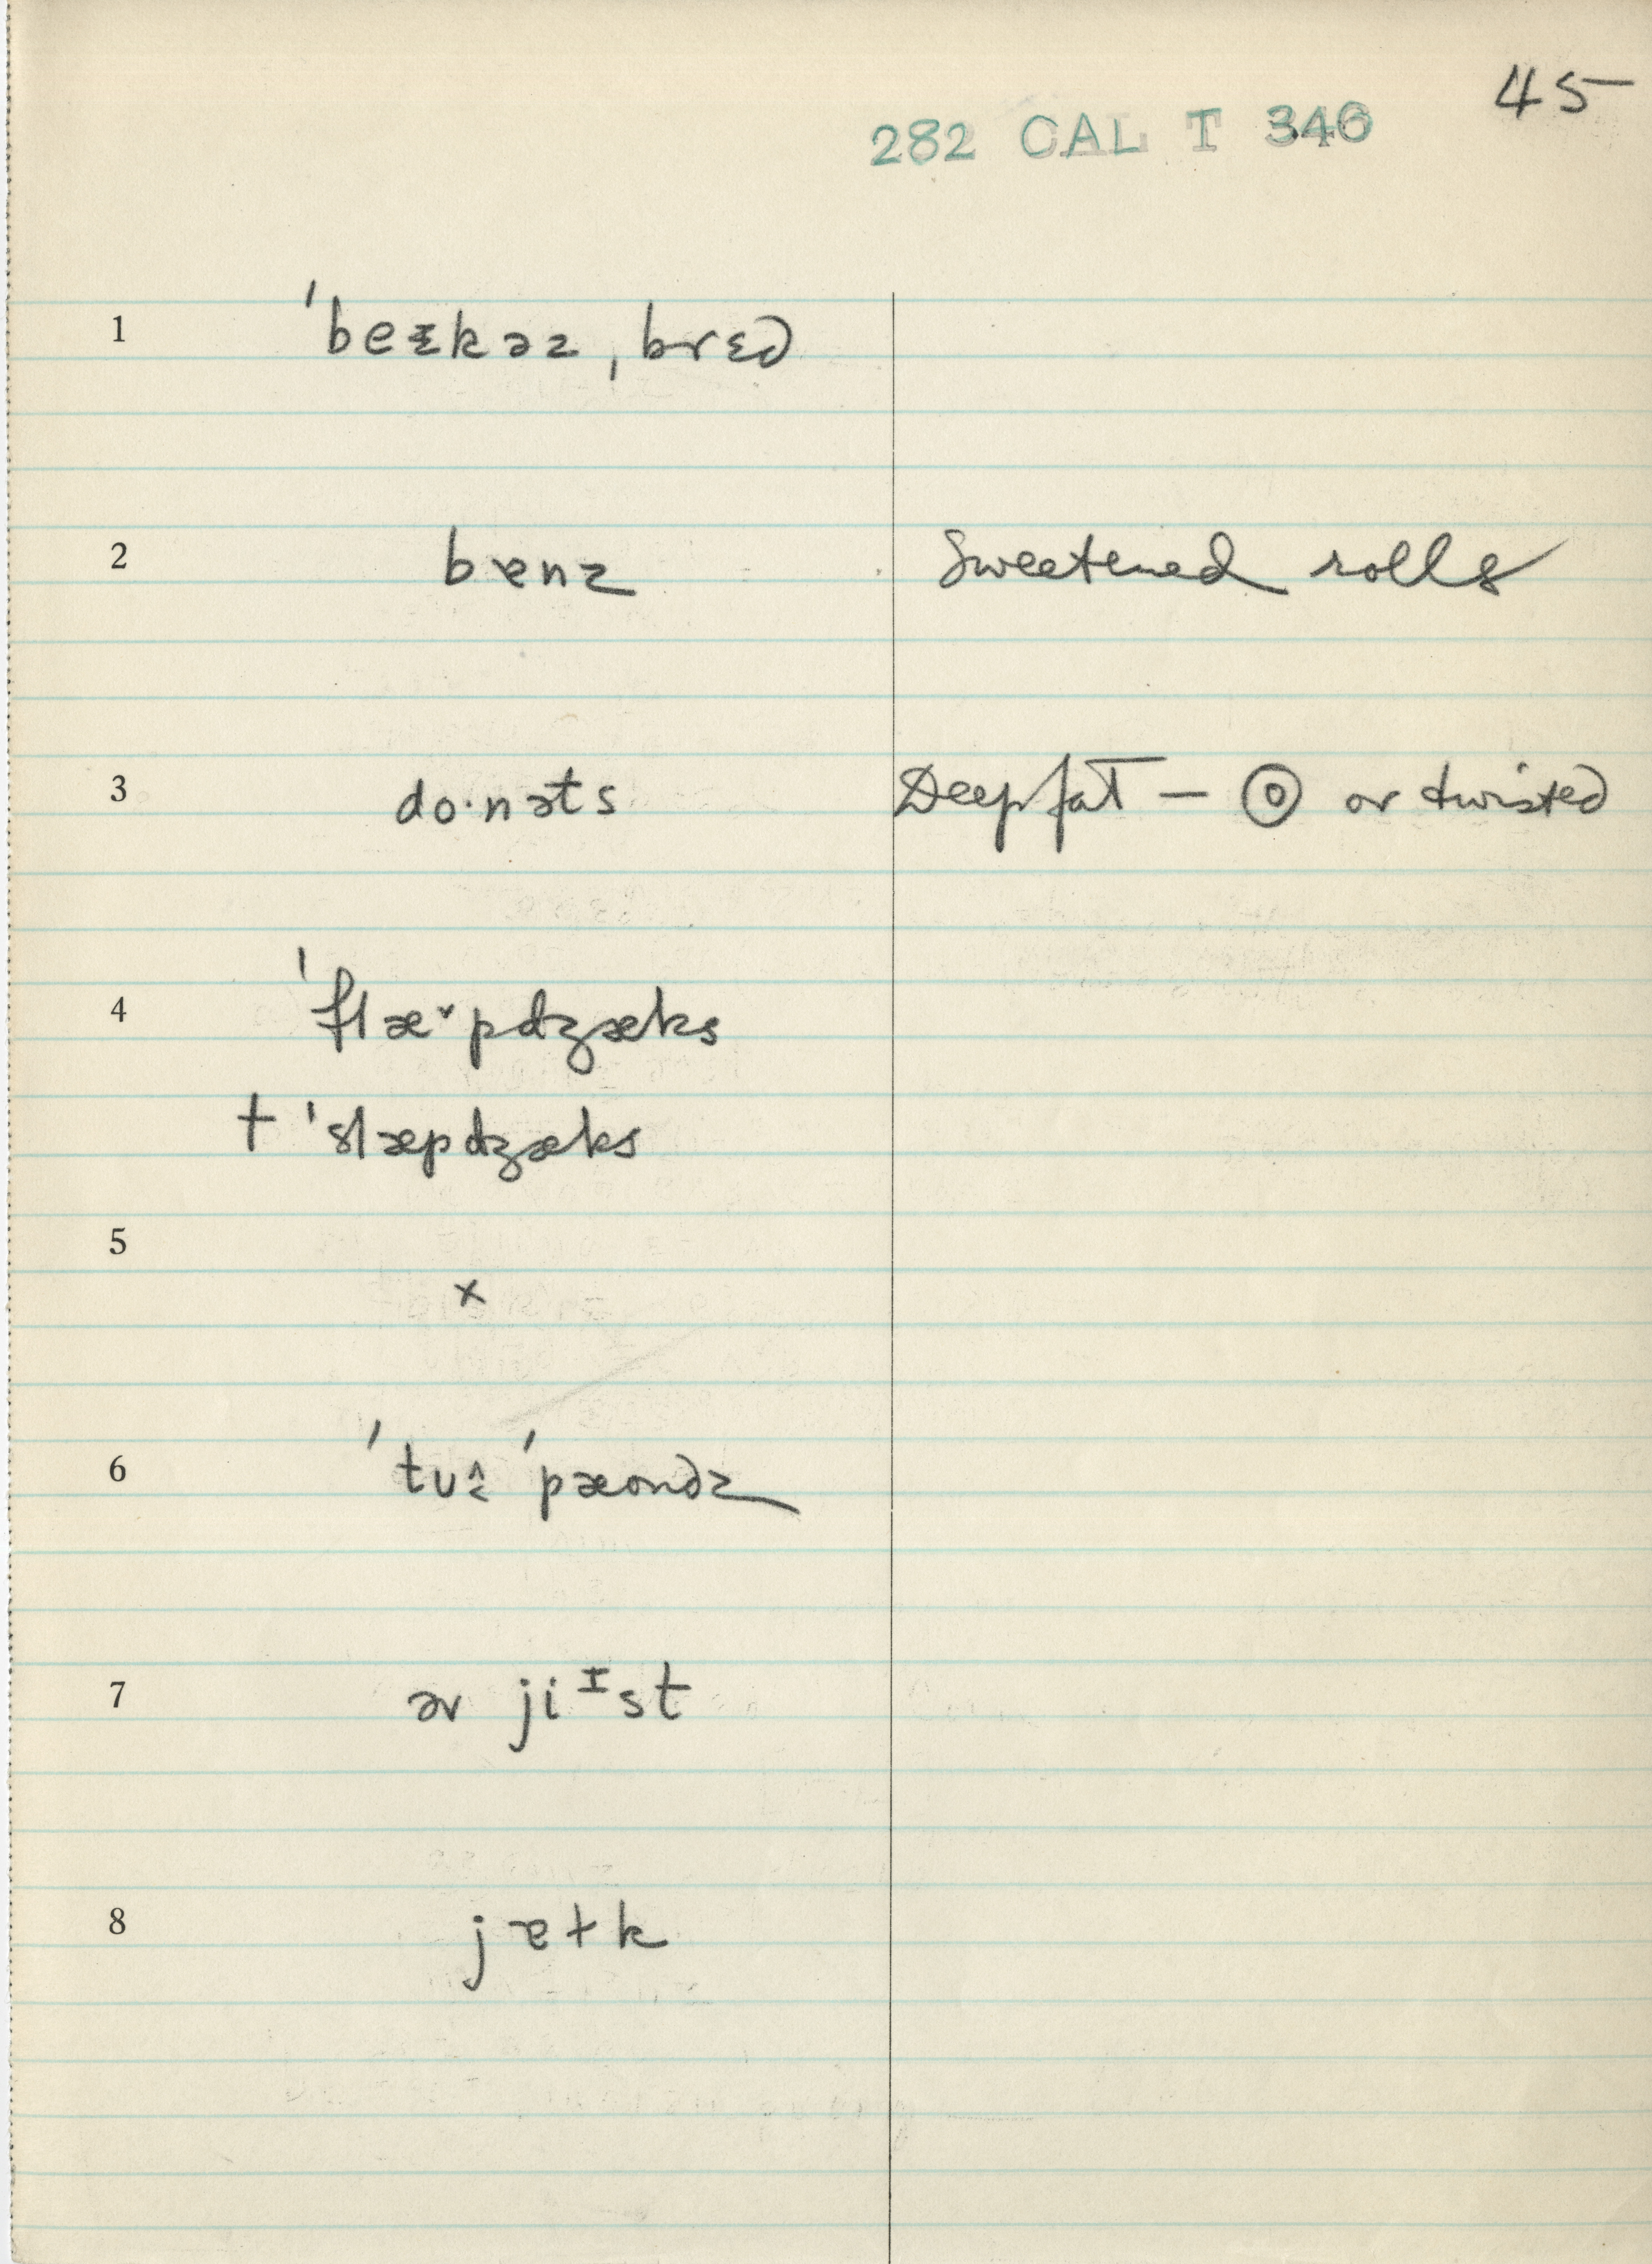 45
282 CAL T 346
1 ˈbeɪkəz ˌbrɛd
2 bɐnz Sweetened rolls
3 do·nəts Deep fat — ◎ or twisted
4 ˈflæ˅pdʒæks
† ˈslæpdʒæks
5
×
6 ˈtʊu ˈpæondz
7 əv jiᶦst
8 jɐɫk